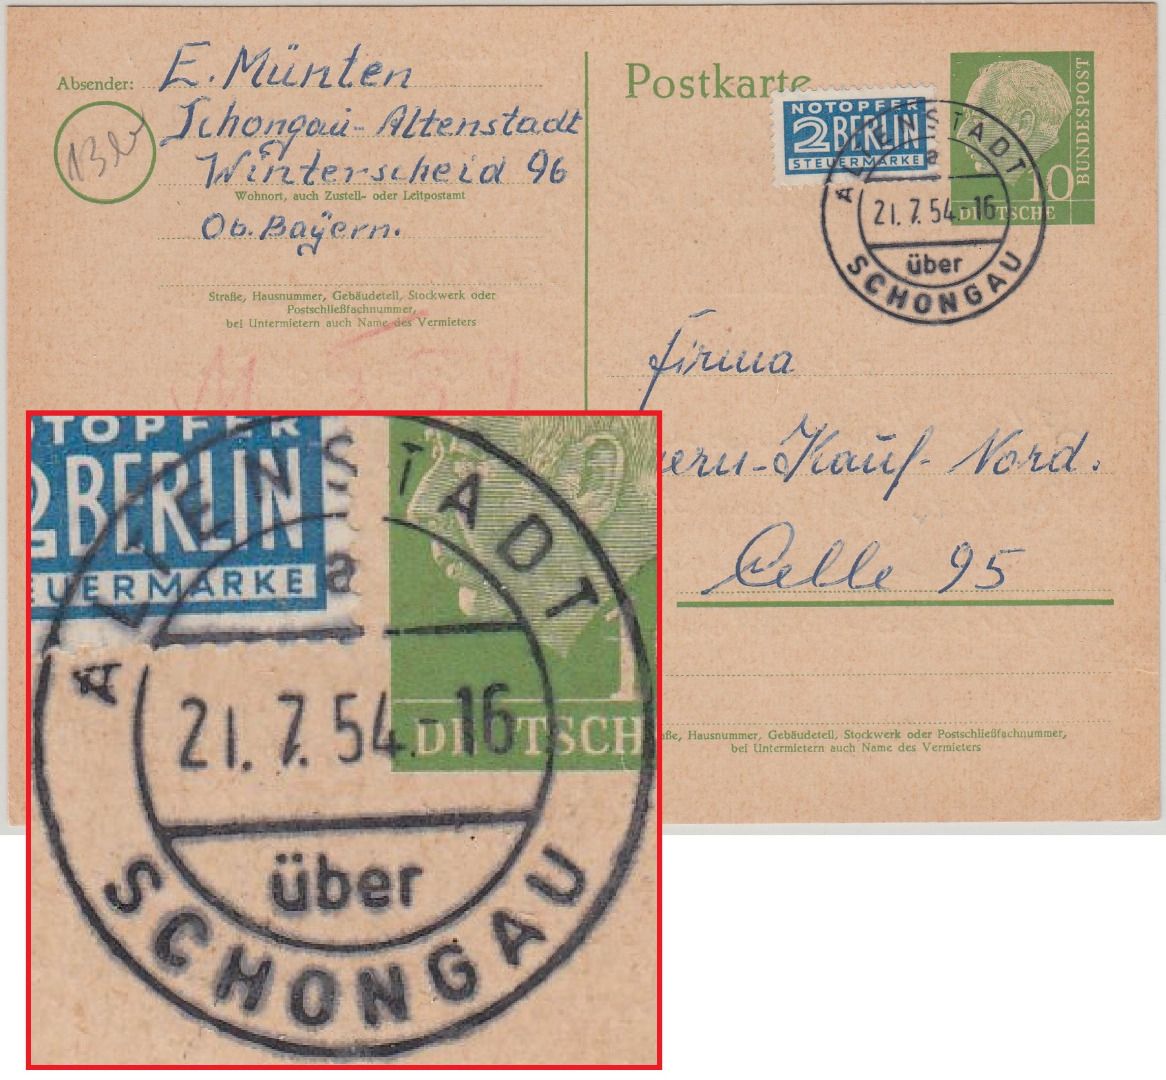 Absender: E. Münten
Schongau-Altenstadt
Winterscheid 96
Wohnort, auch Zustell- oder Leitpostamt
Ob. Bayern.
Straße, Hausnummer, Gebäudeteil, Stockwerk oder
Postschließfachnummer,
bei Untermietern auch Name des Vermieters
Postkarte
NOTOPFER
2 BERLIN
STEUERMARKE
BUNDESPOST
10
DEUTSCHE
ALTENSTADT
a
21.7.54.-16
über
SCHONGAU
Firma
-Kauf-Nord.
Celle 95
Hausnummer, Gebäudeteil, Stockwerk oder Postschließfachnummer,
bei Untermietern auch Name des Vermieters
TOPFER
2 BERLIN
EUERMARKE
1
DEUTSCH
ALTENSTADT
a
21.7.54.-16
über
SCHONGAU